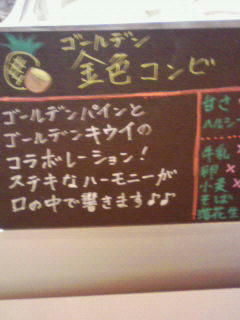 ゴールデン
金色コンビ
ゴールデンパインと
ゴールデンキウイの
コラボレーション!
ステキなハーモニーが
口の中で響きます♪♪
甘さ
ヘルシー
牛乳 ×
卵 ×
小麦 ×
そば
落花生